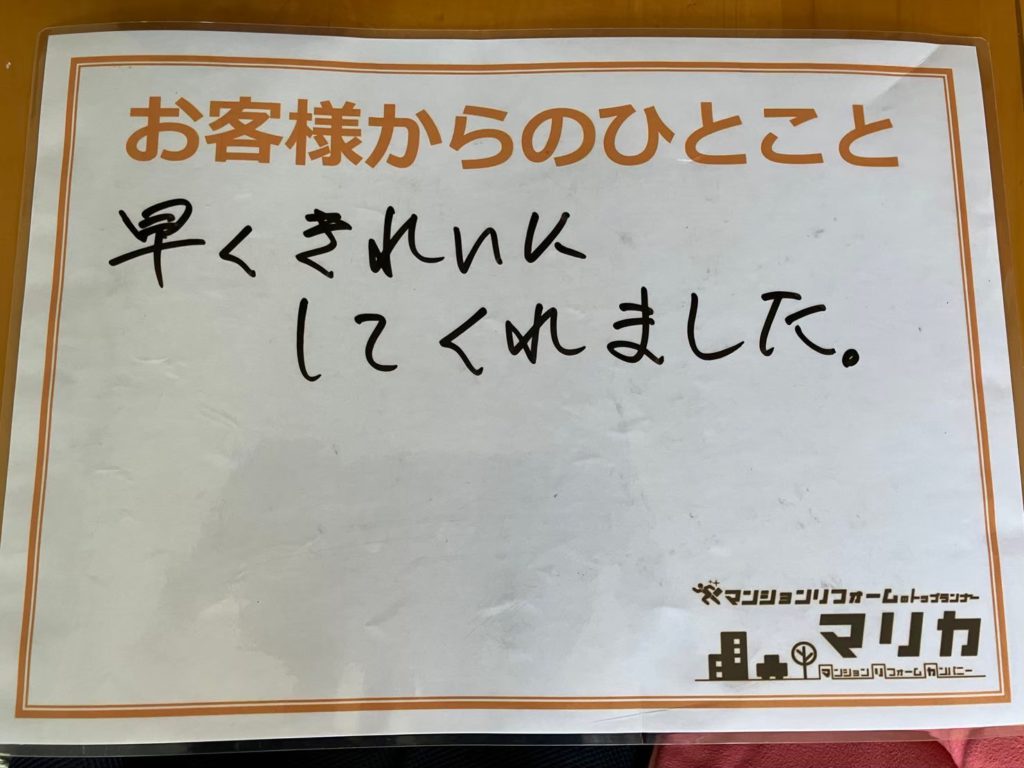 お客様からのひとこと
早くきれいに
してくれました。
マンションリフォームのトップランナー
マリカ
マンションリフォームカンパニー